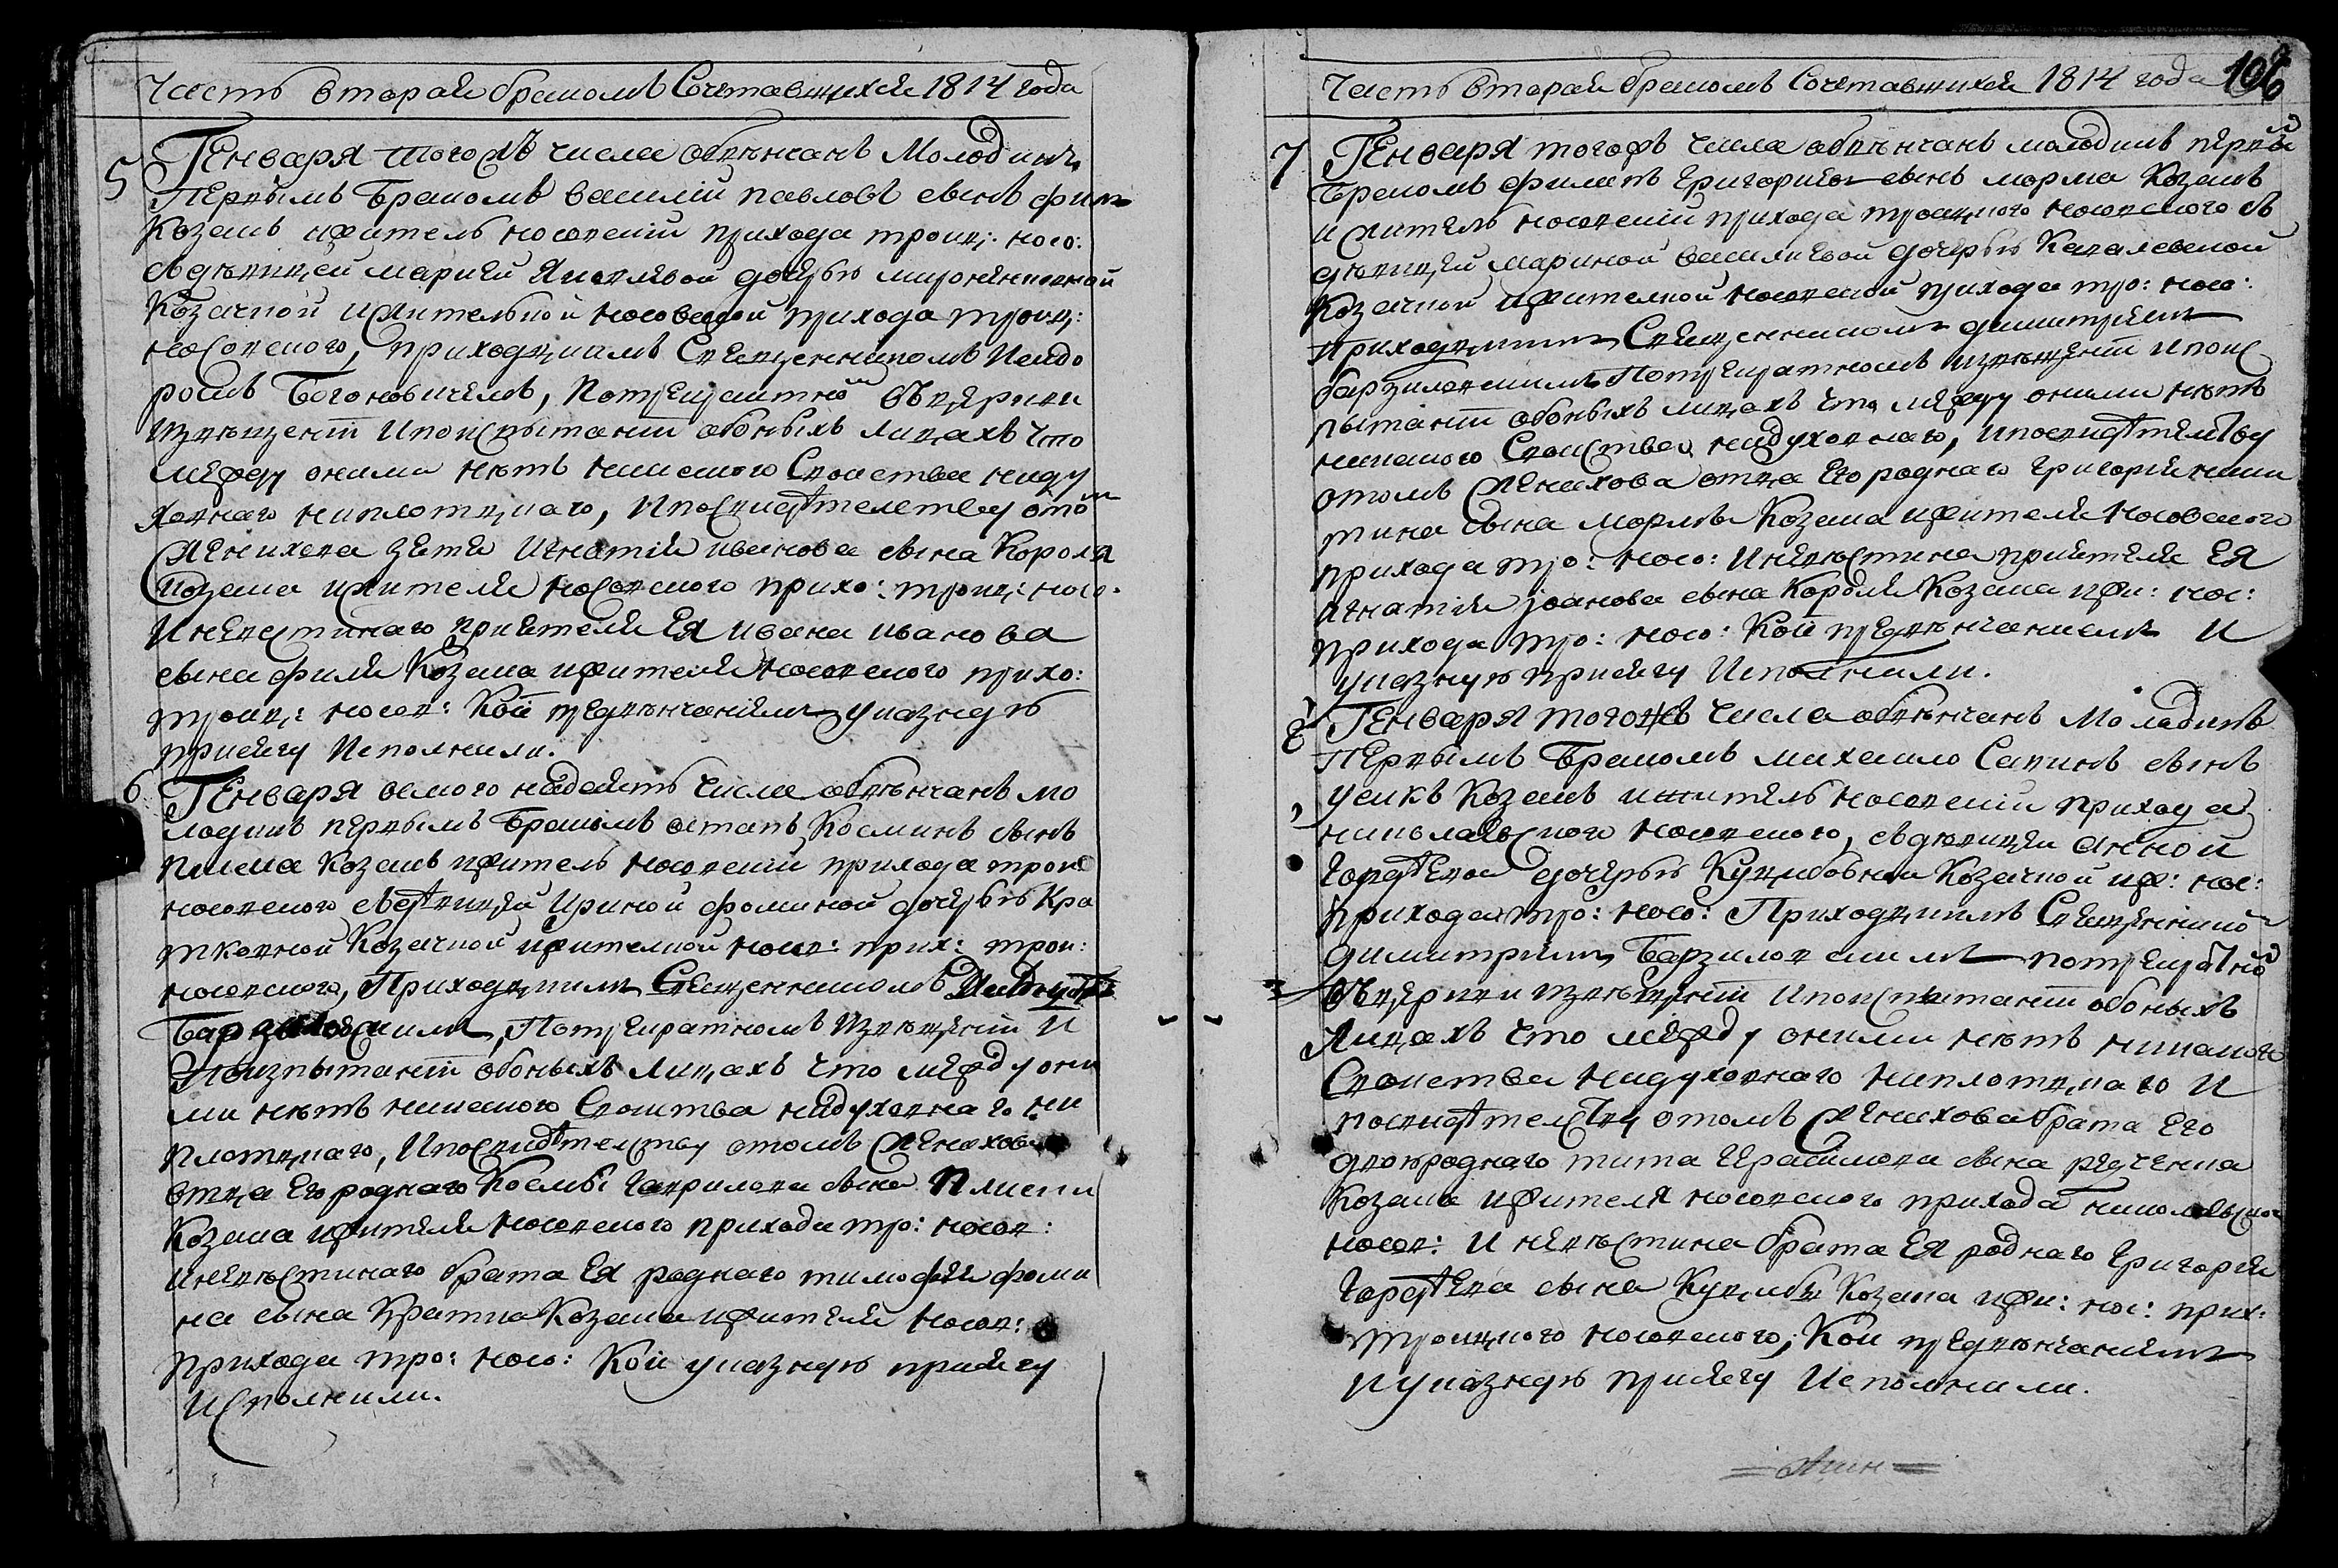 Часть вторая бракомъ Сочетавшихся 1814 года
5 Генваря того жъ числа обвѣнчанъ Молодикъ
Первымъ Бракомъ василій павловъ сынъ
Козакъ житель носовскій прихода троиц: носо:
съ дѣвицей марией Яковлевой дочерью
Козачкой жителькой носовской прихода троиц:
носовского, приходцкимъ Священникомъ Исидо
ромъ Богоновичемъ, По трекратно въ церкви
извѣщеніи и по испытаніи обоныхъ лицахъ что
между оними нѣтъ никакого Свойства ни ду
ховнаго ни плотцкаго, и по свидѣтелству о то
женихова зятя Игнатія иванова сына Короля
Козака жителя носовского прихо: троиц: носо.
и невестинаго приятеля Ея ивана иванова
сына филя Козака жителя носовского прихо:
троиц: носов: Кои предвѣнчаніемъ указную
присягу исполнили.
6 Генваря осмого надесять числа обвѣнчанъ мо
лодикъ первымъ бракомъ остапъ Косминъ сынъ
плиска Козакъ житель носовскій прихода трои
носовского съ девицей Ириной фоминой дочерью Кра
тковной Козачкой жителкой носов: прих: трои:
носовского, Приходцкимъ Священникомъ
Барзиловскимъ, По трекратномъ извѣщеніи и
по изпытаніи обоныхъ лицахъ что между они
ми нѣтъ никакого Свойтва ни духовнаго ни
плотцкаго, и по свидѣтелству о томъ женихова
отца Его роднаго Космы гаврилова сына Плиски
Козака жителя носовского прихода тро: носов:
и невѣстинаго брата Ея роднаго тимофея фоми
на сына Кратка Козака жителя носов:
прихода тро: носо: Кои указную присягу
исполнили.
Часть вторая бракомъ Сочетавшихся 1814 года 106
7 Генваря тогожъ числа обвѣнчанъ молодикъ первы
бракомъ филипъ Григориевъ сынъ морма Козакъ
и житель носовскій прихода троицкого носовского съ
дѣвицей Мариной василиевой дочерью Кавалевской
Козачкой жителкой носовской прихода тро: носо:
приходцкимъ Священникомъ димитриемъ
барзиловскимъ По трекратномъ извѣщеніи и по ис
пытаніи обоныхъ лицахъ что между оними нѣтъ
никакого Свойства ни духовнаго, и по свидѣтелству
о томъ женихова отца Его роднаго Григория ники
тина сына мормы Козака жителя носовского
прихода тро: носо: и невѣстина приятеля Ея
игнатія іоанова сына Короля Козака жи: нос:
прихода тро: носо: Кои предвѣнчаниемъ и
указную присягу исполнили.
8 Генваря тогожъ числа обвѣнчанъ Молодикъ
Первымъ Бракомъ михаило Савинъ сынъ
усикъ Козакъ житель носовскій прихода
николаевского носовского, съ дѣвицей Анной
Гордѣевой дочерью Куцибовной Козачкой жи: нос:
прихода тро: носо: Приходцкимъ Священнико
димитриемъ Барзиловскимъ по трекратно
въ церкви извѣщеніи и по испытаніи обоныхъ
лицахъ что между оними нѣтъ никакого
Свойства ни духовнаго ни плотцкаго и
по свидѣтелству о томъ женихова брата Его
двоюроднаго тита Герасимова сына редченка
Козака жителя носовского прихода
носов: и невѣстина брата Ея роднаго Григория
Гордѣева сына Куцибы Козака жи: нос: прих:
троицкого носовского, Кои предвѣнчаниемъ
и указную присягу исполнили.